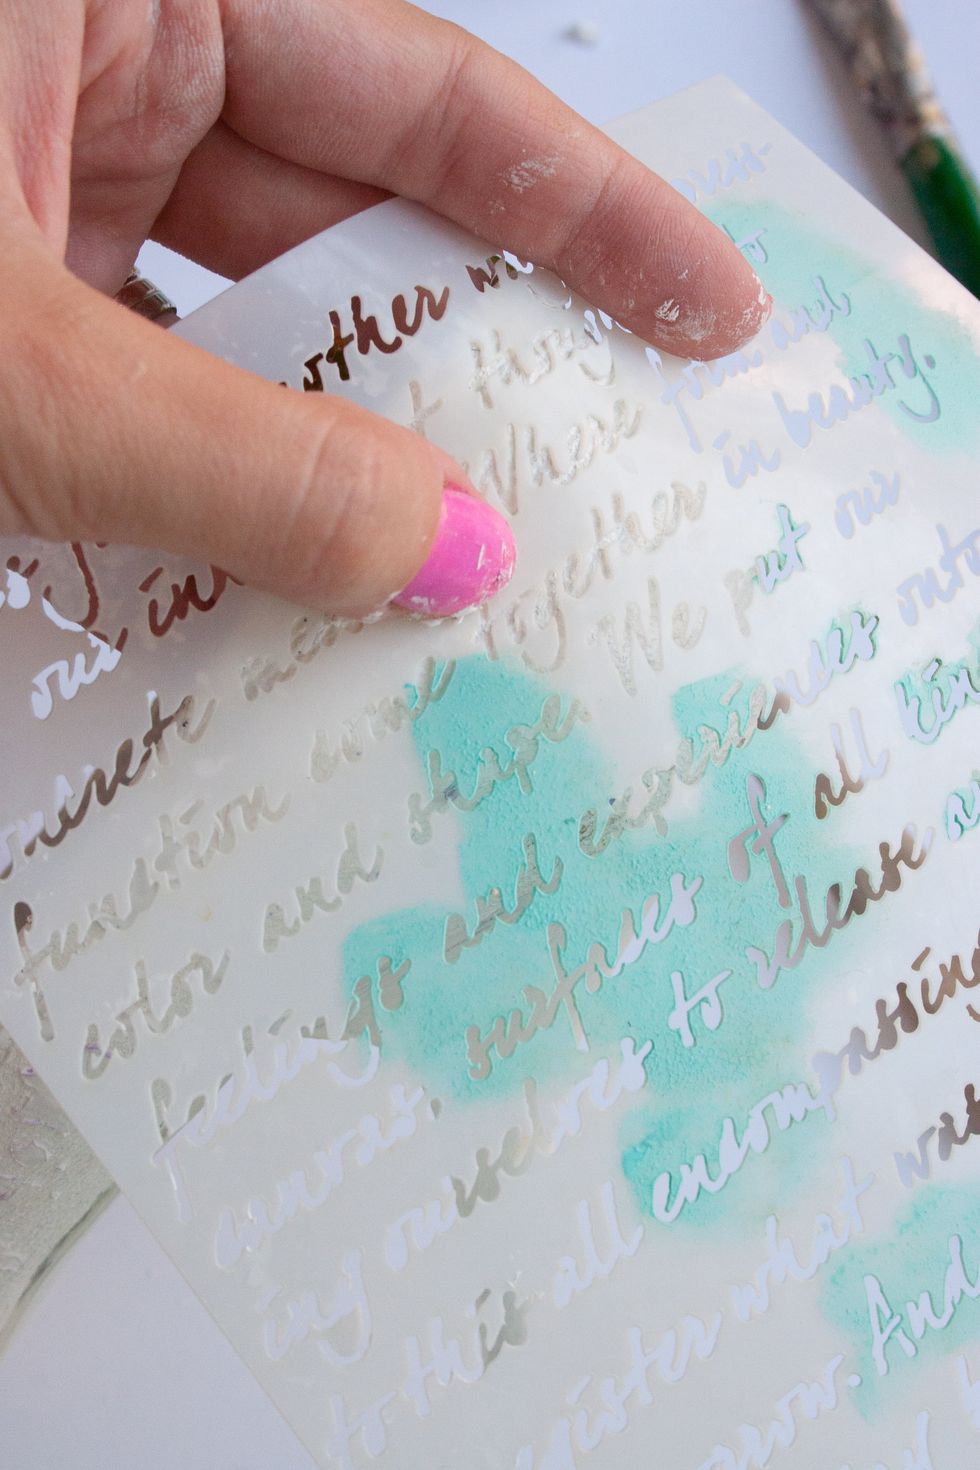 other press-
our though to
concrete Where form and
function come together in beauty.
color and shape. We put our
feelings and experiences onto
canvas, surfaces of all
ing ourselves to release
to this all encompassing
what was
And